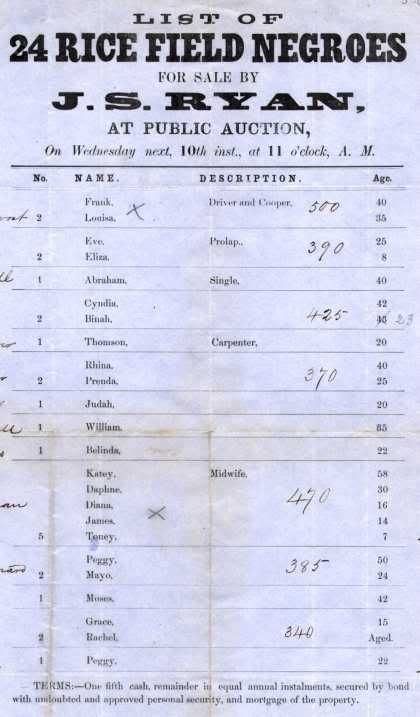 LIST OF
24 RICE FIELD NEGROES
FOR SALE BY
J. S. RYAN,
AT PUBLIC AUCTION,
On Wednesday next, 10th inst., at 11 o'clock, A. M.
No. NAME. DESCRIPTION. Age.
Frank, Driver and Cooper, 500 40
2 Louisa, X 35
Eve, Prolap., 390 25
2 Eliza, 8
1 Abraham, Single, 40
Cyndia, 42
2 Binah, 425 23
1 Thomson, Carpenter, 20
Rhina, 40
2 Prenda, 370 25
1 Judah, 20
1 William, 35
1 Belinda, 22
Katey, Midwife, 58
Daphne, 30
Diana, 470 16
James, X 14
5 Toney, 7
Peggy, 385 50
2 Mayo, 24
1 Moses, 42
Grace, 15
2 Rachel, 340 Aged.
1 Peggy, 22
— TERMS:—One fifth cash, remainder in equal annual instalments, secured by bond
with undoubted and approved personal security, and mortgage of the property.